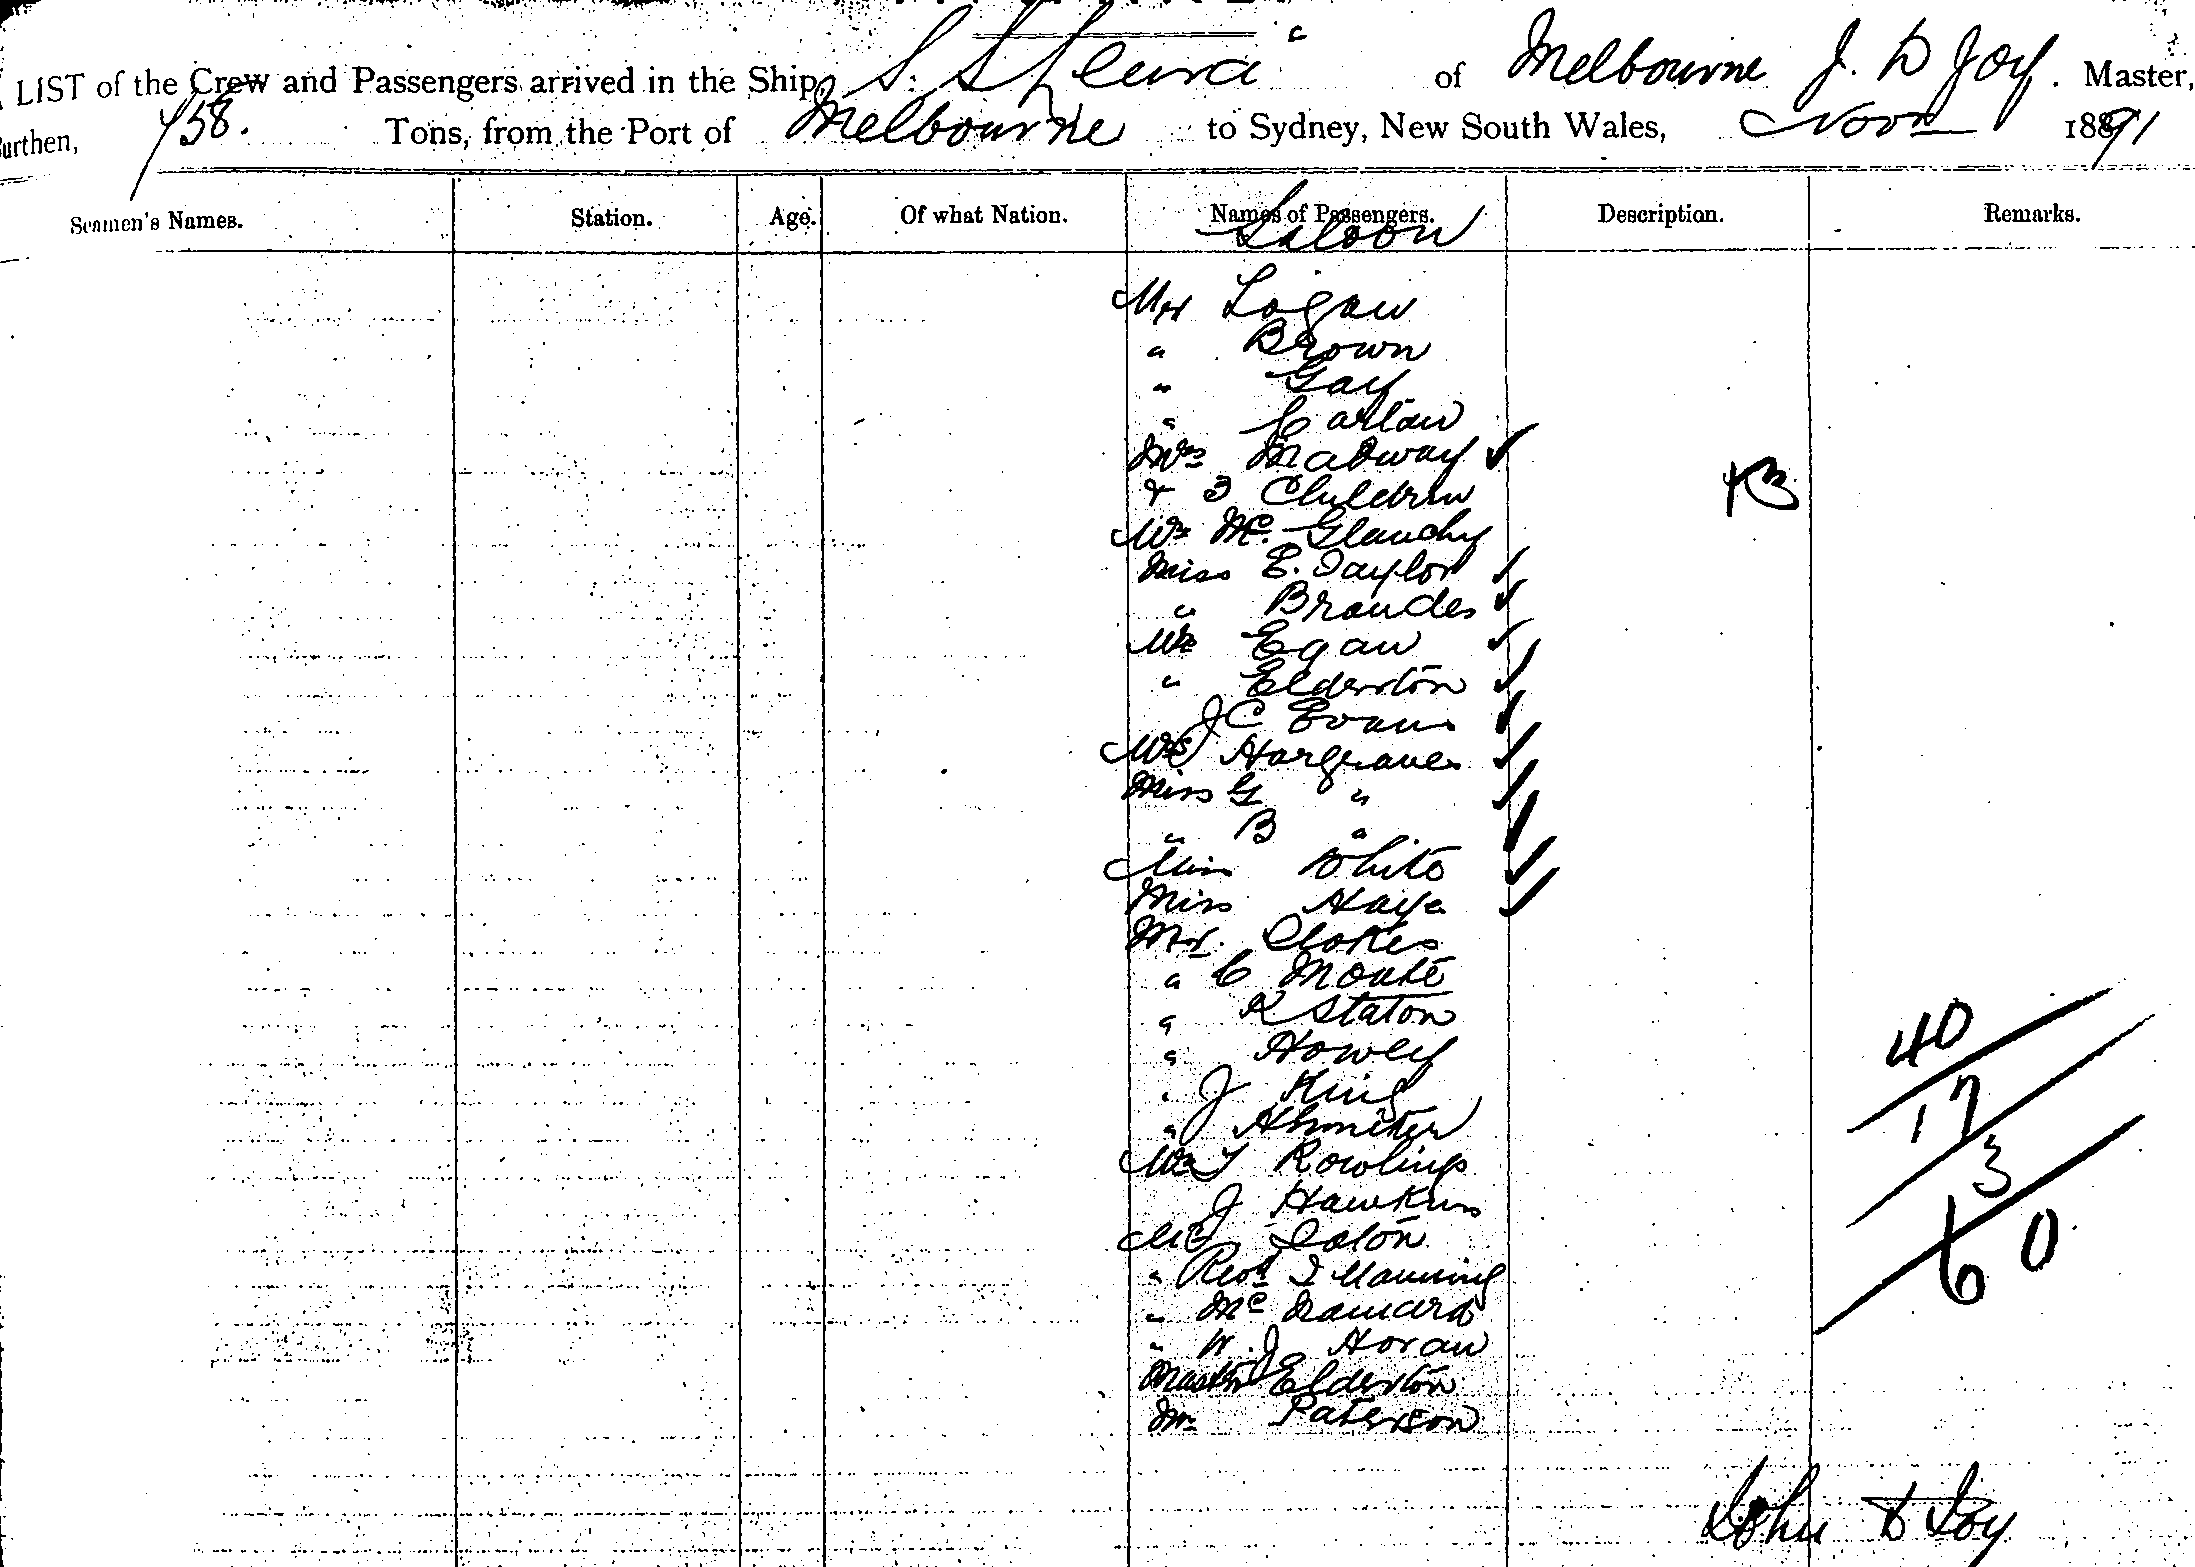 LIST of the Crew and Passengers arrived in the Ship S. S. Leura of Melbourne J. D Joy. Master,
urthen, 458. Tons, from the Port of Melbourne to Sydney, New South Wales, Novr 1891
Seamen's Names. Station. Age. Of what Nation. Names of Passengers. Description. Remarks.
Saloon
Mr Logan
" Brown
" Gay
"
Mrs Madway ✓
& 3 Children
+3
Mr Mc Glanchy
Miss E. Taylor ✓
" Brandes ✓
Mrs Egan ✓
" Elderton ✓
J C Evans ✓
Hargraves ✓
Miss G " ✓
" B " ✓
Miss White ✓
Miss Haye ✓
Mr. Clokes
" C
" R Staton
" Howey
" J King
" J
T Rowlings
J Hawkins
Eaton
" Revd I Manning
" Mc
" W. J Horan
Master Elderton
Mr Paterson
40
17
3
60
John D Joy